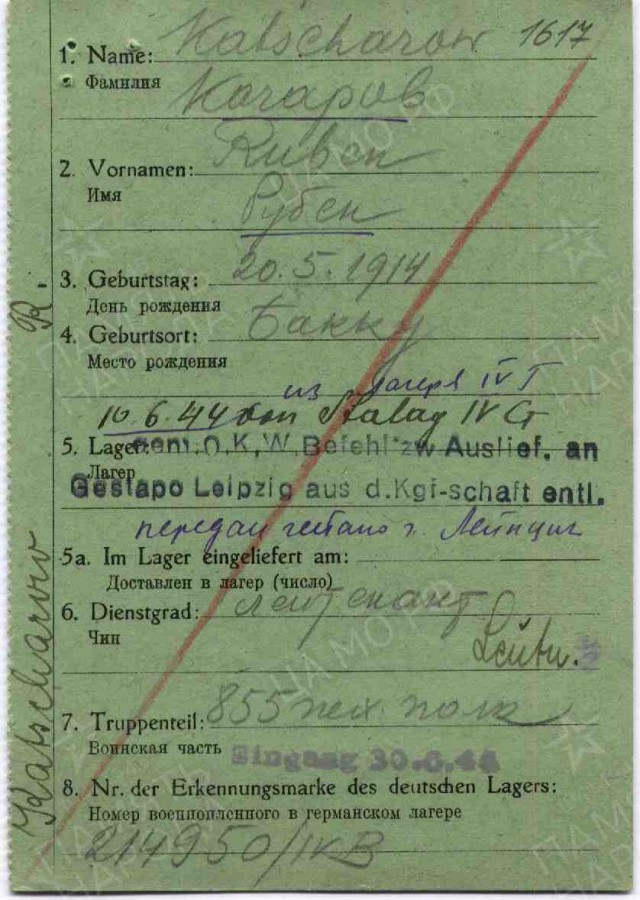 1. Name: Katscharow 1617
Фамилия Кочаров
2. Vornamen: Ruben
Имя
Рубен
3. Geburtstag: 20.5.1914
День рождения
4. Geburtsort: Бакку
Место рождения
из лагеря IV
10.6.44 von Stalag IV G
5. Lager: gem. O.K.W. Befehl zw Auslief. an
Лагерь
Gestapo Leipzig aus d. Kgf-schaft entl.
передан гестапо г. Лейпциг
5a. Im Lager eingeliefert am:
Доставлен в лагерь (число)
6. Dienstgrad: лейтенант
Чин
Leutn.
7. Truppenteil: 855 пех. полк
Воинская часть
Eingang 30.6.44
8. Nr. der Erkennungsmarke des deutschen Lagers:
Номер военнопленного в германском лагере
214950/IV B
Katscharow R-